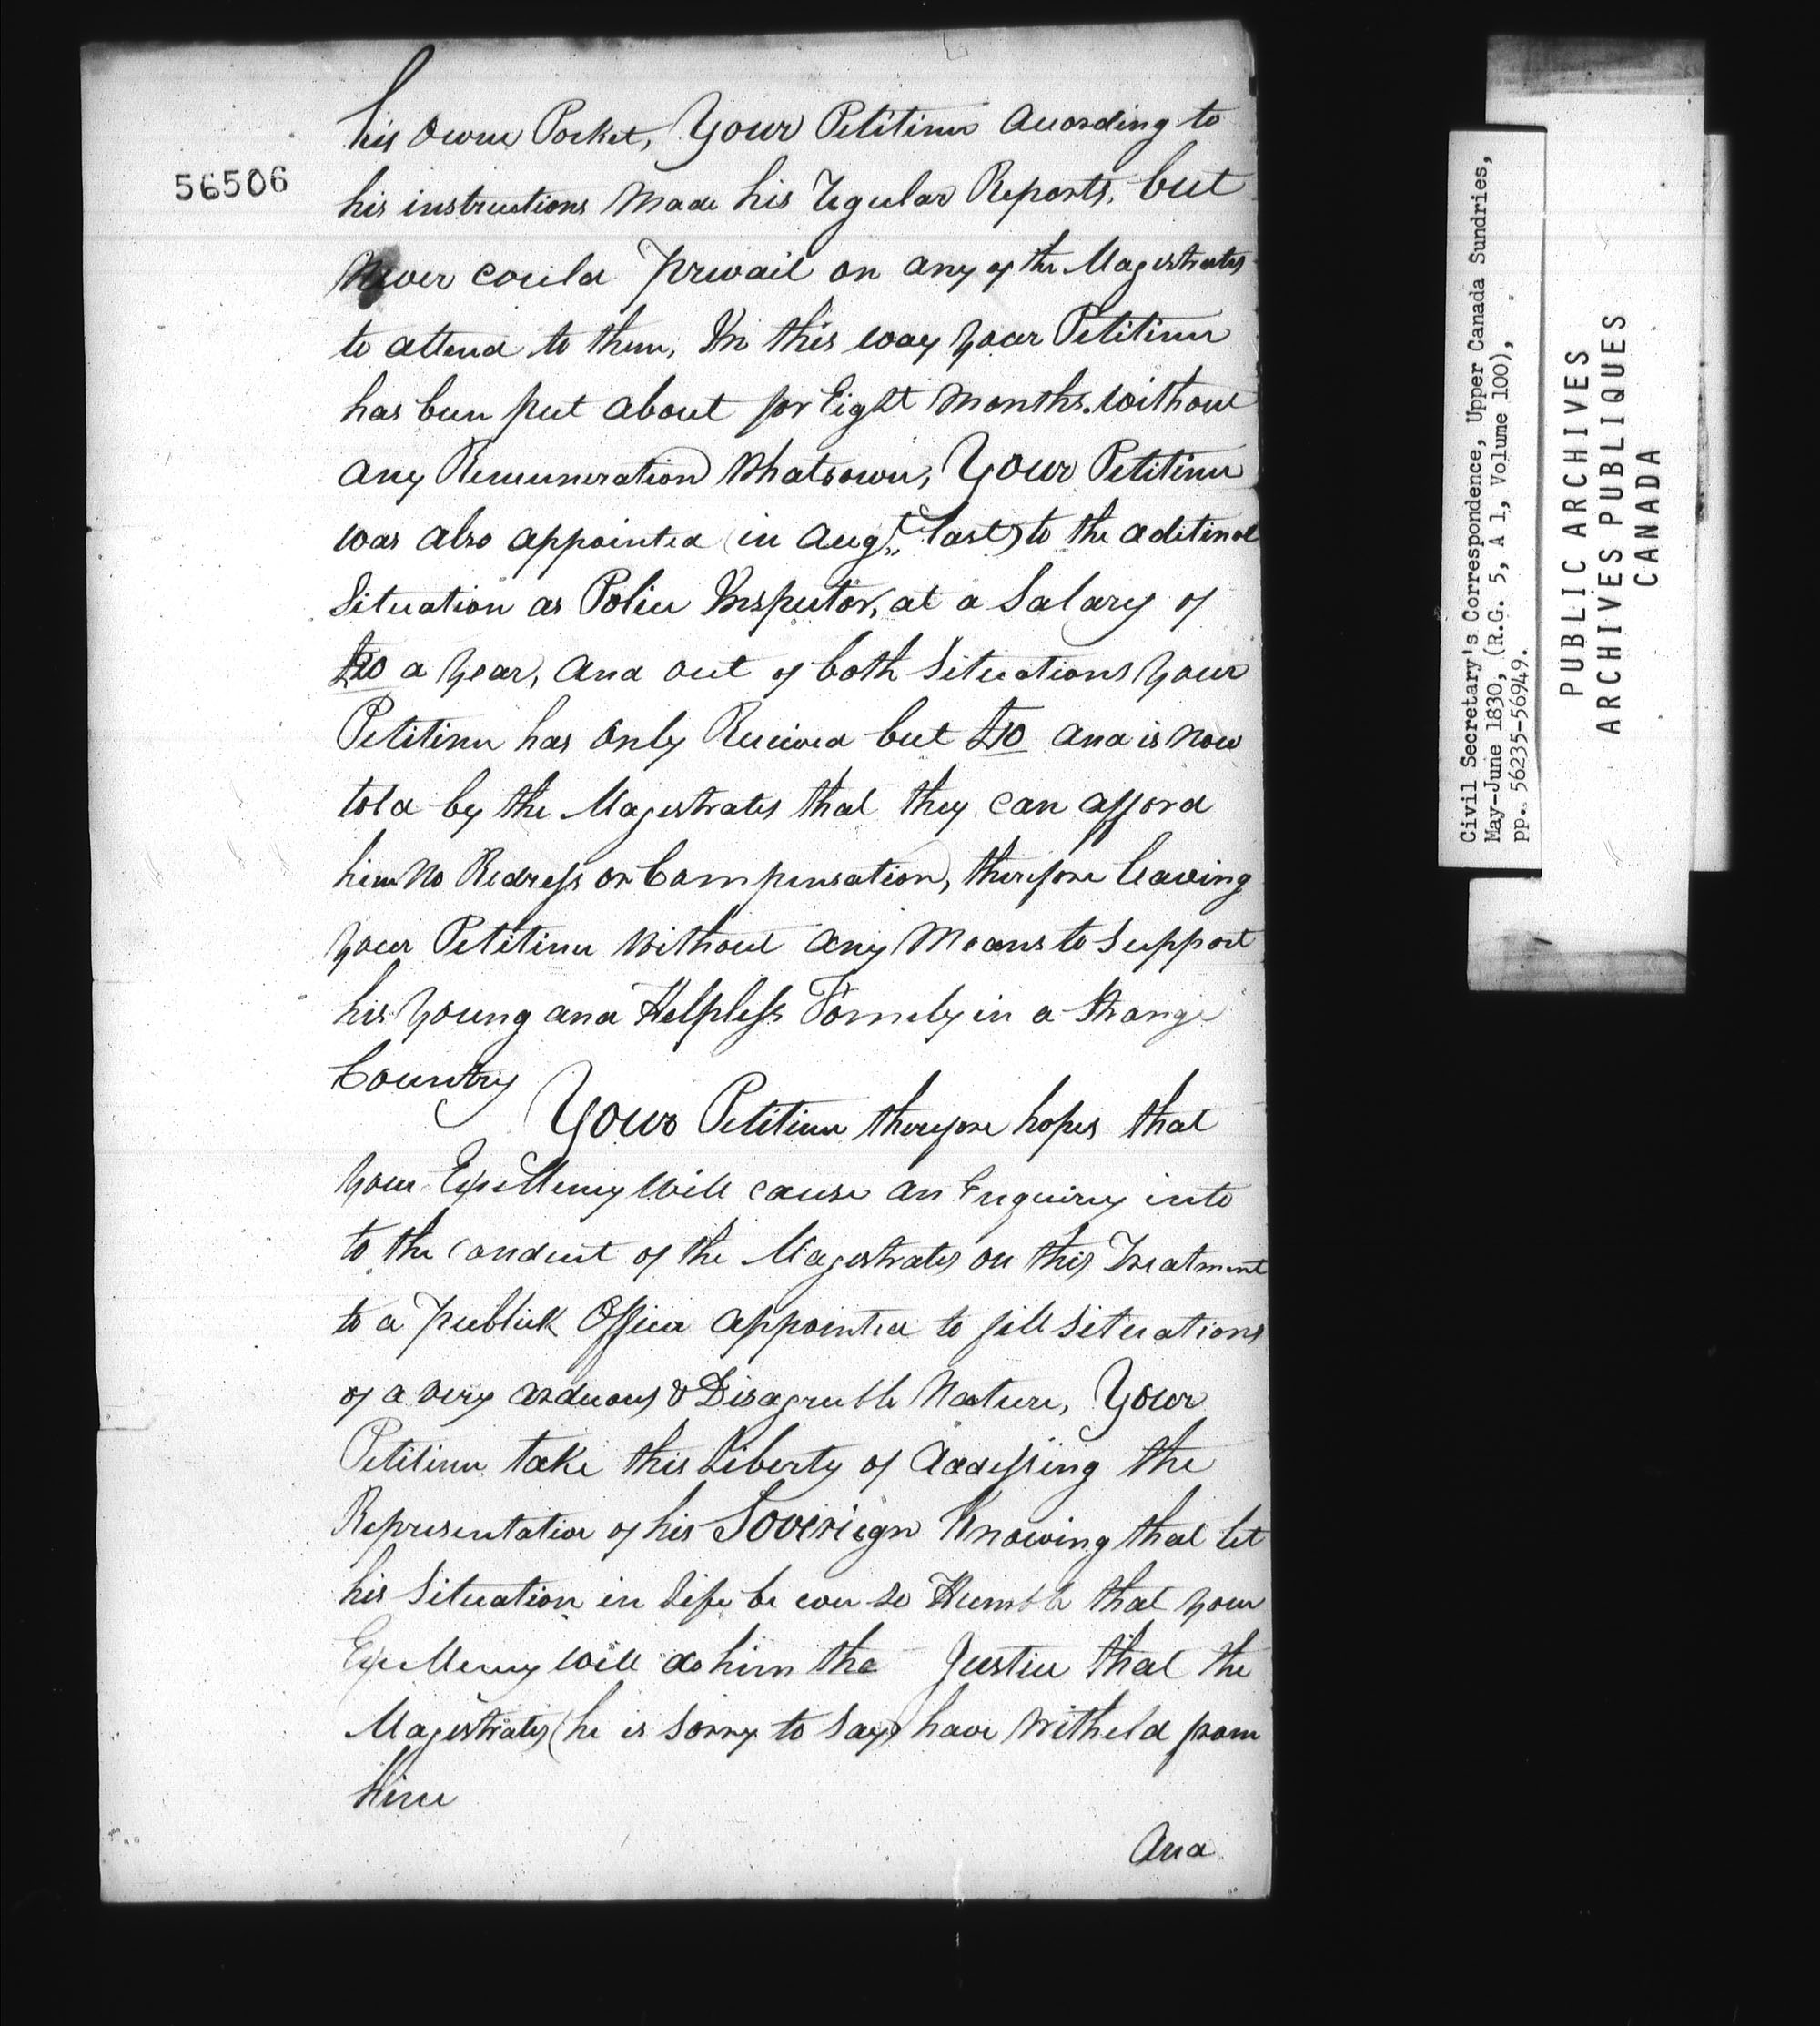 56506
his Owne Pocket, Your Petitiner According to
his instructions Made his regular Reports, but
Never could prevail on any of the Magistrates
to attend to them, In this way your Petitiner
has been put about for Eight Months. Without
any Remuneration Whatsoever, Your Petitiner
was also appointed (in Augt. last) to the aditinal
Situation as Police Inspector, at a Salary of
£20 a Year, and out of both Situations your
Petitiner has Only Received but £10 and is Now
told by the Magistrates that they can afford
him No Redress or Compensation, therefore leaving
your Petitiner Without any Means to Support
his Young and Helpless Famely in a Strange
Country
Your Petitiner therefore hopes that
your Excellency Will cause an Enquirey into
to the Conduct of the Magistrates on this Treatment
to a Publick Officer appointed to fill Situations
of a very arduous & Disagreeble Nature, Your
Petitiner take this Liberty of Addessing the
Representative of his Soveriegn Knowing that let
his Situation in Life be ever so Humble that your
Excellency Will do him the Justice that the
Magistrates (he is Sorry to Say) have Witheld from
Him
And
Civil Secretary's Correspondence, Upper Canada Sundries,
May-June 1830, (R.G. 5, A 1, Volume 100),
pp. 56235-56949.
PUBLIC ARCHIVES
ARCHIVES PUBLIQUES
CANADA